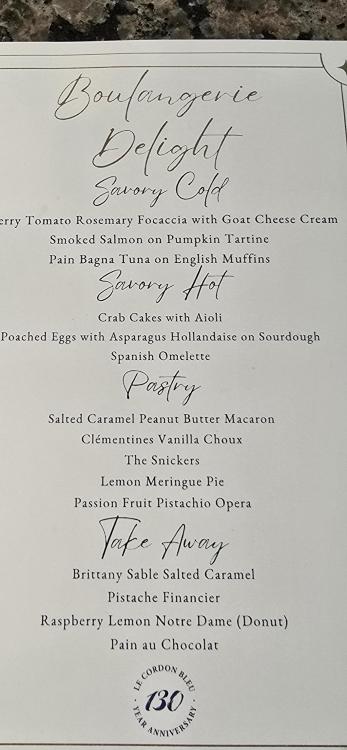 Boulangerie
Delight
Savory Cold
erry Tomato Rosemary Focaccia with Goat Cheese Cream
Smoked Salmon on Pumpkin Tartine
Pain Bagna Tuna on English Muffins
Savory Hot
Crab Cakes with Aioli
Poached Eggs with Asparagus Hollandaise on Sourdough
Spanish Omelette
Pastry
Salted Caramel Peanut Butter Macaron
Clémentines Vanilla Choux
The Snickers
Lemon Meringue Pie
Passion Fruit Pistachio Opera
Take Away
Brittany Sable Salted Caramel
Pistache Financier
Raspberry Lemon Notre Dame (Donut)
Pain au Chocolat
LE CORDON BLEU
130
YEAR ANNIVERSARY